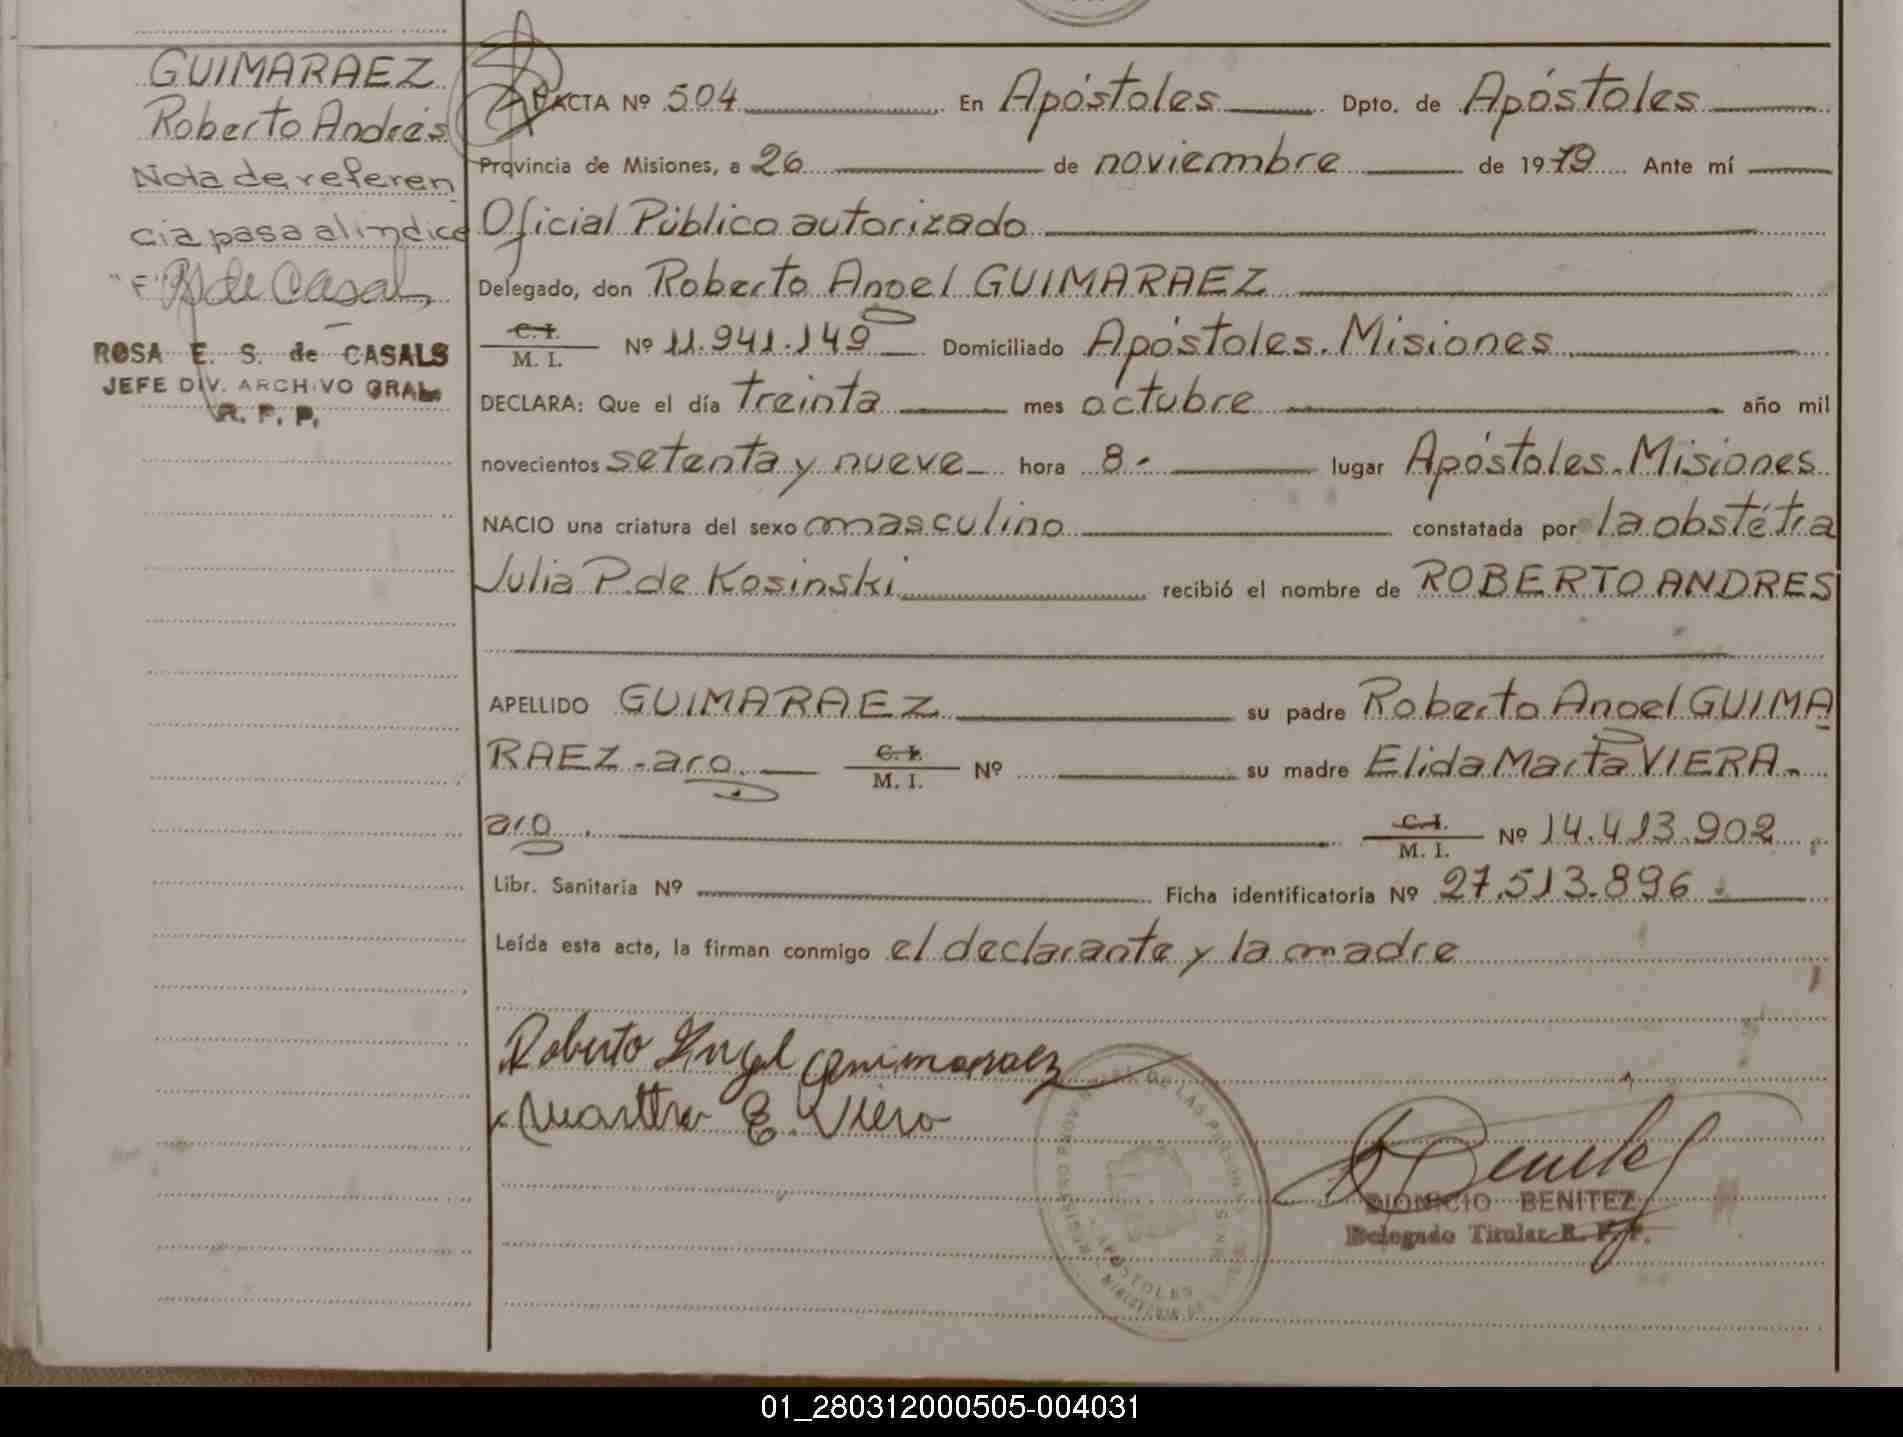 GUIMARAEZ
Roberto Andrés
Nota de referen
cia pasa al indice
"F"
R de Casals
ROSA E. S. de CASALS
JEFE DIV. ARCHIVO GRAL.
R. P. P.
ACTA Nº 504 En Apóstoles Dpto. de Apóstoles
Provincia de Misiones, a 26 de noviembre de 1979 Ante mí
Oficial Público autorizado
Delegado, don Roberto Angel GUIMARAEZ
C. I.
M. I. Nº 11.941.149 Domiciliado Apóstoles. Misiones
DECLARA: Que el día treinta mes octubre año mil
novecientos setenta y nueve hora 8.- lugar Apóstoles. Misiones
NACIO una criatura del sexo masculino constatada por la obstétra
Julia P. de Kosinski recibió el nombre de ROBERTO ANDRES
APELLIDO GUIMARAEZ su padre Roberto Angel GUIMA
RAEZ - arg. C. I. M. I. Nº su madre Elida Marta VIERA -
arg. C. I. M. I. Nº 14.413.902
Libr. Sanitaria Nº Ficha identificatoria Nº 27.513.896
Leída esta acta, la firman conmigo el declarante y la madre
Roberto Angel Guimaraez
Martha E. Viera
Benitez
DIONICIO BENITEZ
Delegado Titular R. P. P.
DE LAS PERSONAS
APOSTOLES
01_280312000505-004031